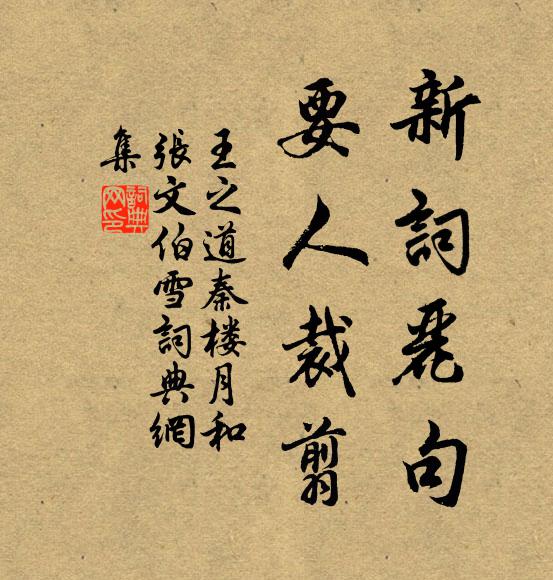 新詞麗句
要人裁剪
王之道秦楼月和
張文伯雪詞典網
集
詞典
网印